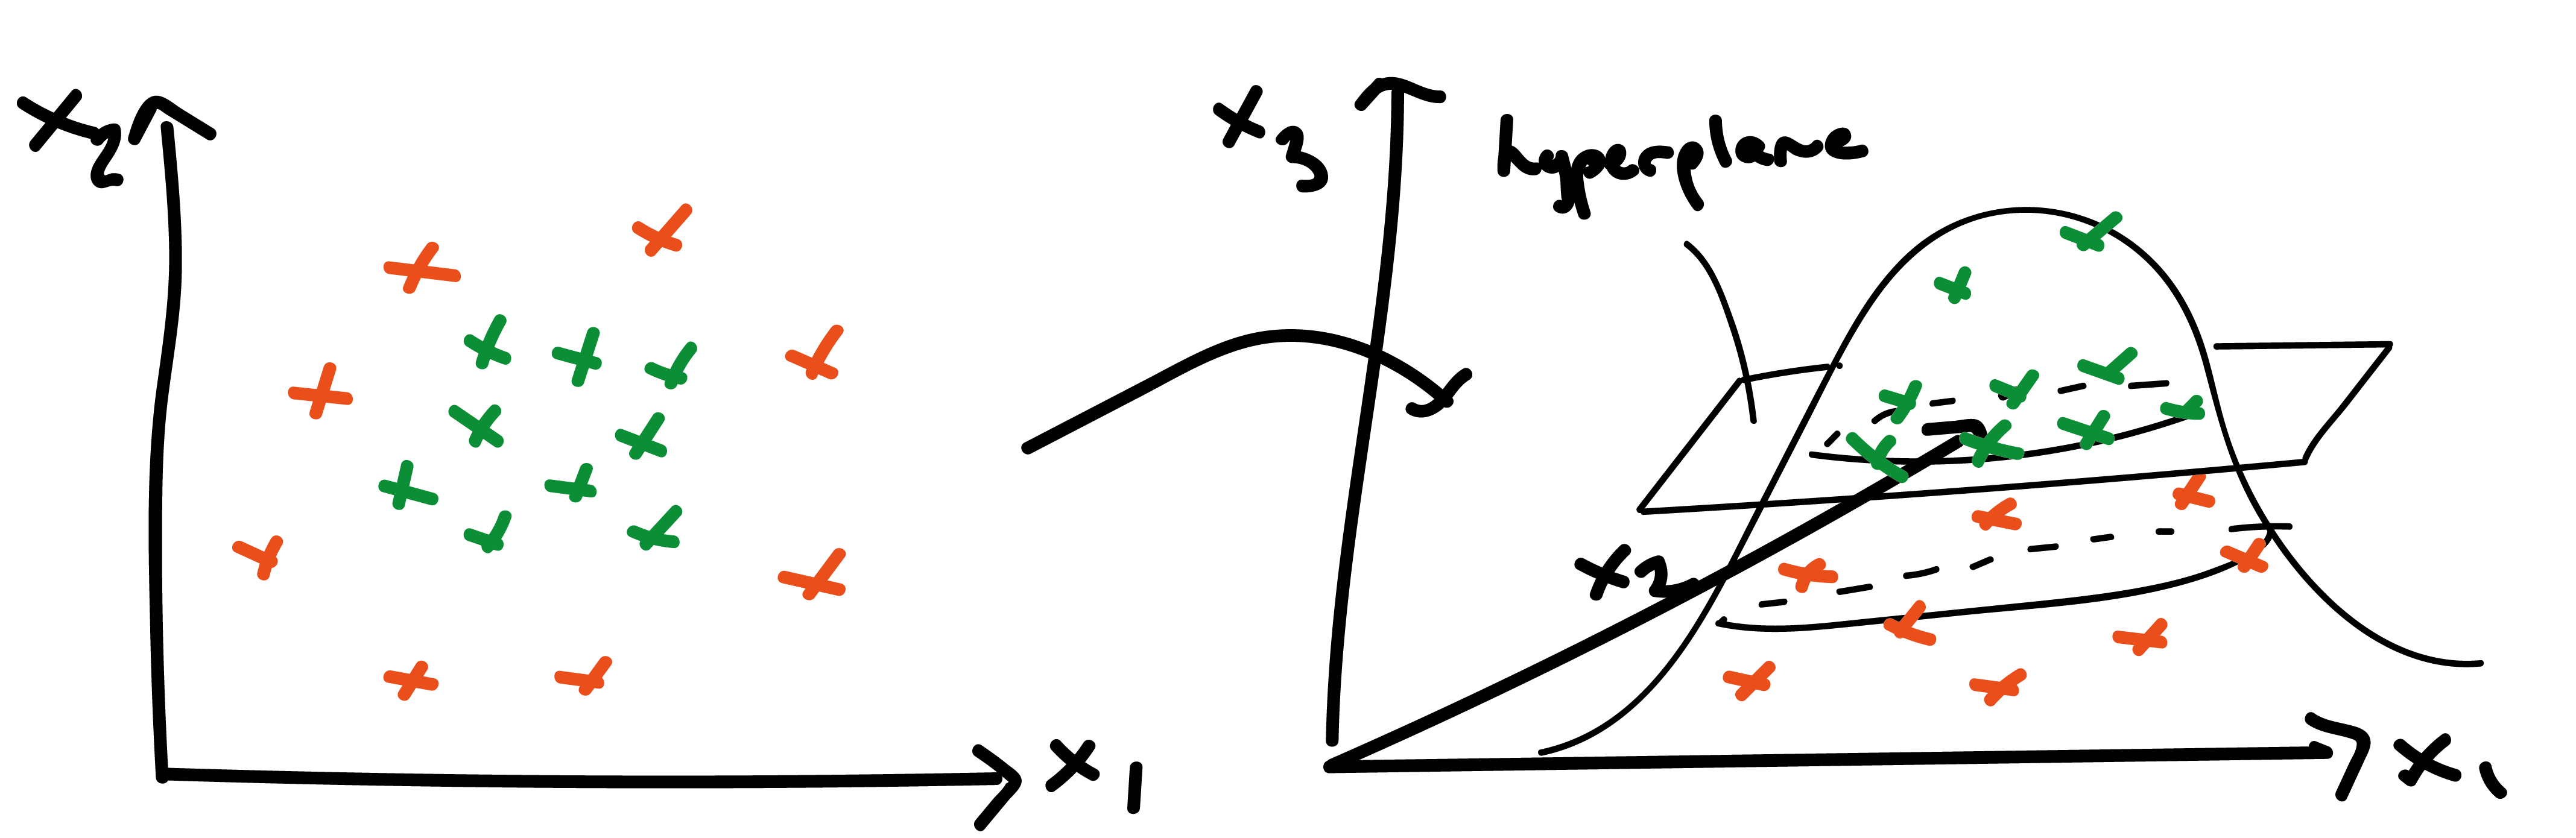 x2
x1
x3
hyperplane
x2
x1